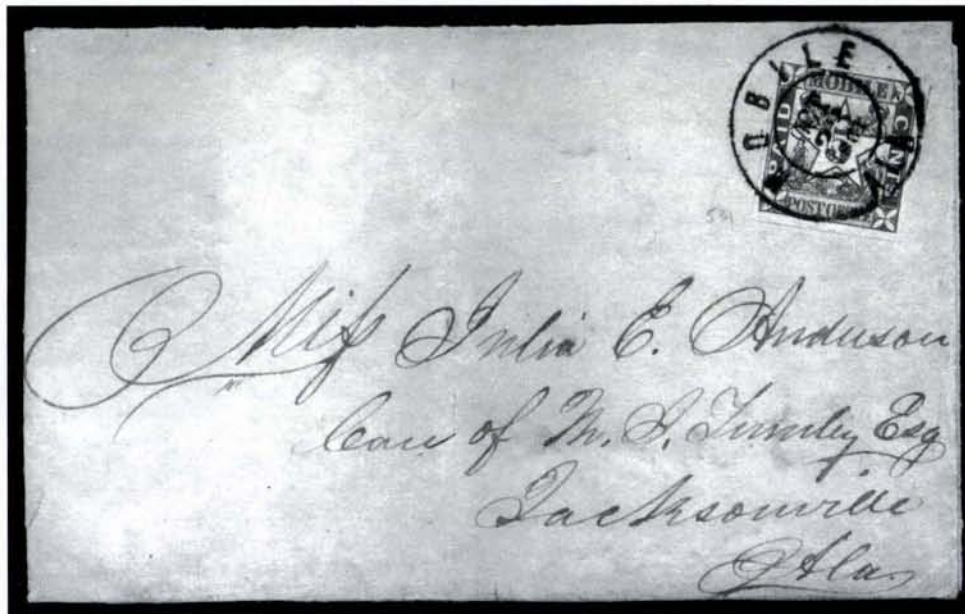 MOBILE ALA
MOBILE
PAID
CENTS
POST OFFICE
Miſs Julia E. Anderson
Care of M. J. Turnley Esq
Jacksonville
Ala